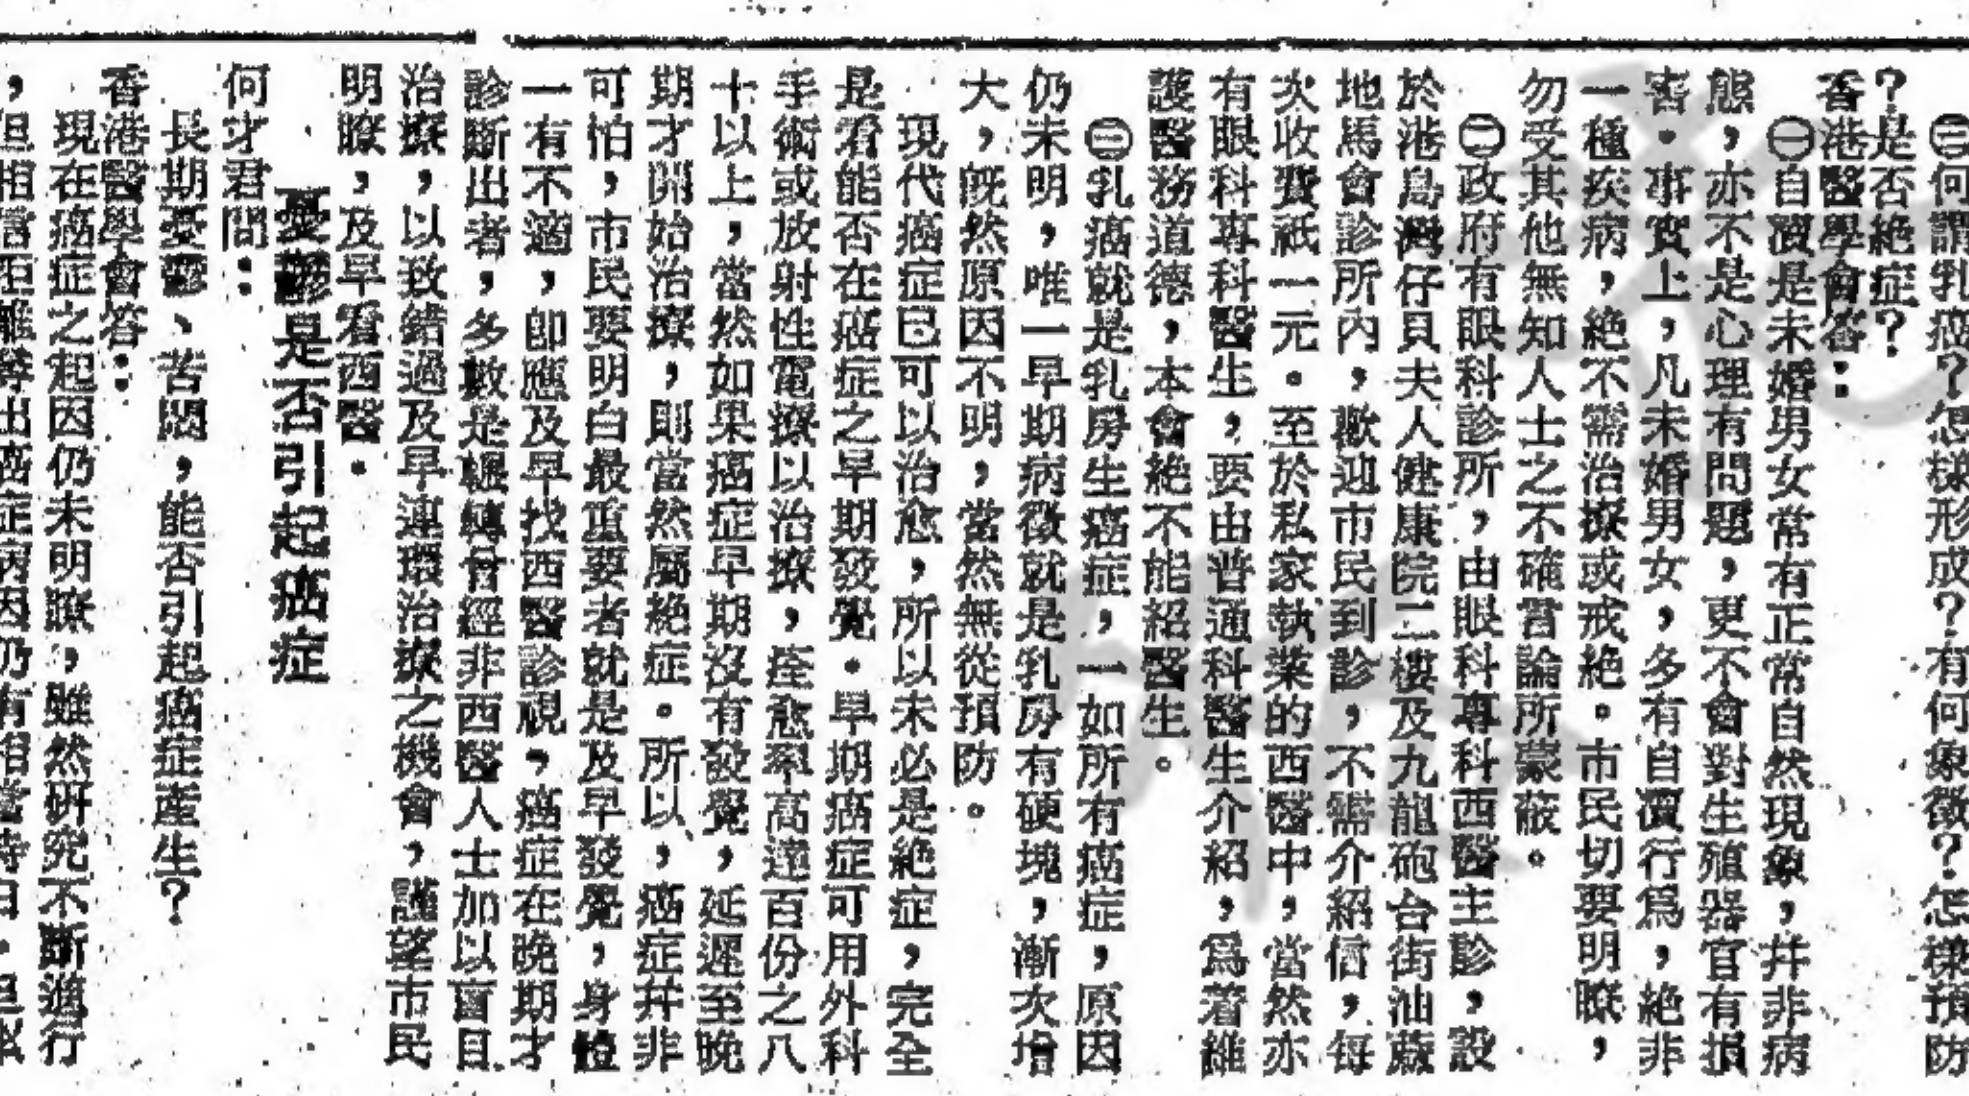 ㊂何謂乳癌？怎樣形成？有何象徵？怎樣預防
？是否絕症？
香港醫學會答：
㊀自瀆是未婚男女常有正常自然現象，幷非病
態，亦不是心理有問題，更不會對生殖器官有損
害。事實上，凡未婚男女，多有自瀆行爲，絕非
一種疾病，絕不需治療或戒絕。市民切要明瞭，
勿受其他無知人士之不確言論所蒙蔽。
㊁政府有眼科診所，由眼科專科西醫主診，設
於港島灣仔貝夫人健康院二樓及九龍砲台街油蔴
地馬會診所內，歡迎市民到診，不需介紹信，每
次收費祇一元。至於私家執業的西醫中，當然亦
有眼科專科醫生，要由普通科醫生介紹，爲着維
護醫務道德，本會絕不能紹醫生。
㊂乳癌就是乳房生癌症，一如所有癌症，原因
仍未明，唯一早期病徵就是乳房有硬塊，漸次增
大，旣然原因不明，當然無從預防。
現代癌症已可以治愈，所以未必是絕症，完全
是看能否在癌症之早期發覺。早期癌症可用外科
手術或放射性電療以治療，痊愈率高達百份之八
十以上，當然如果癌症早期沒有發覺，延遲至晚
期才開始治療，則當然屬絕症。所以，癌症幷非
可怕，市民要明白最重要者就是及早發覺，身體
一有不適，卽應及早找西醫診視，癌症在晚期才
診斷出者，多數是輾轉曾經非西醫人士加以盲目
治療，以致錯過及早連環治療之機會，謹望市民
明瞭，及早看西醫。
憂鬱是否引起癌症
何才君問：
長期憂鬱、苦悶，能否引起癌症產生？
香港醫學會答：
現在癌症之起因仍未明瞭，雖然研究不斷進行
，但相信距離尋出癌症病因仍有相當時日，